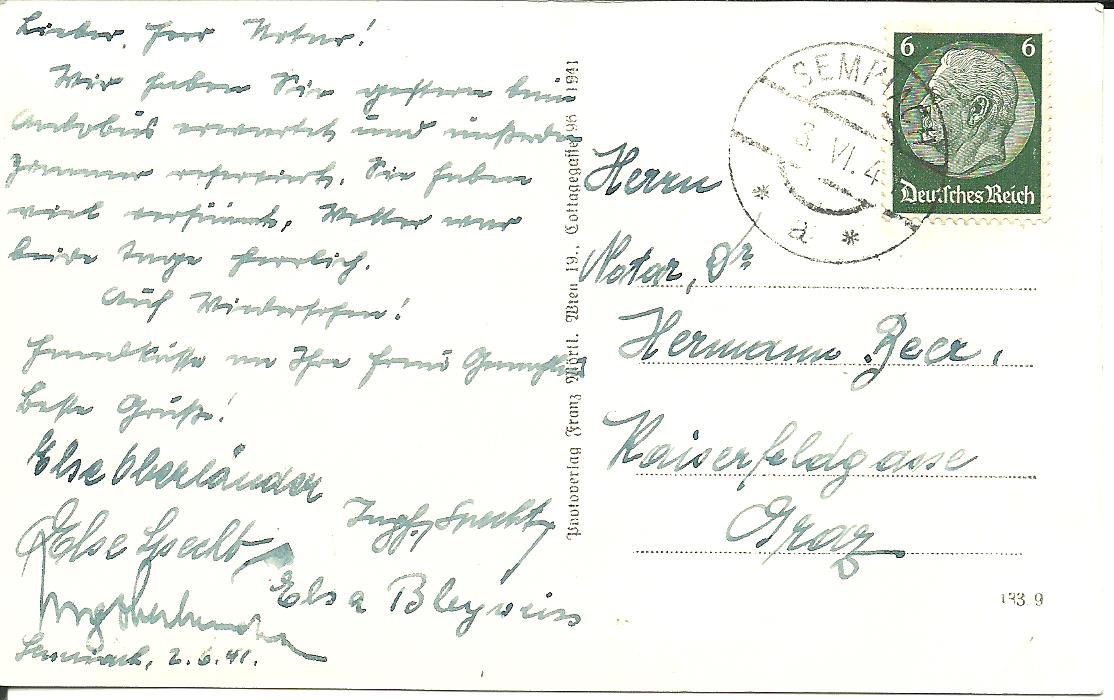 Lieber Herr Notar!
Wir haben Sie gestern beim
Autobus erwartet und außerdem
Zimmer reserviert. Sie haben
viel versäumt, Wetter war
beide Tage herrlich.
Auf Wiedersehen!
Handküsse an Ihre Frau Gemahlin
Beste Grüße!
Else Oberländer
Else Specht
Elsa Bleyweiss
2.6.41.
Photoverlag Franz Mörtl. Wien 19., Cottagegasse 96 1941
SEM
3. VI. 4
a
6 6
Deutsches Reich
Herrn
Notar, Dr
Hermann Beer.
Kaiserfeldgasse
Graz
133 9